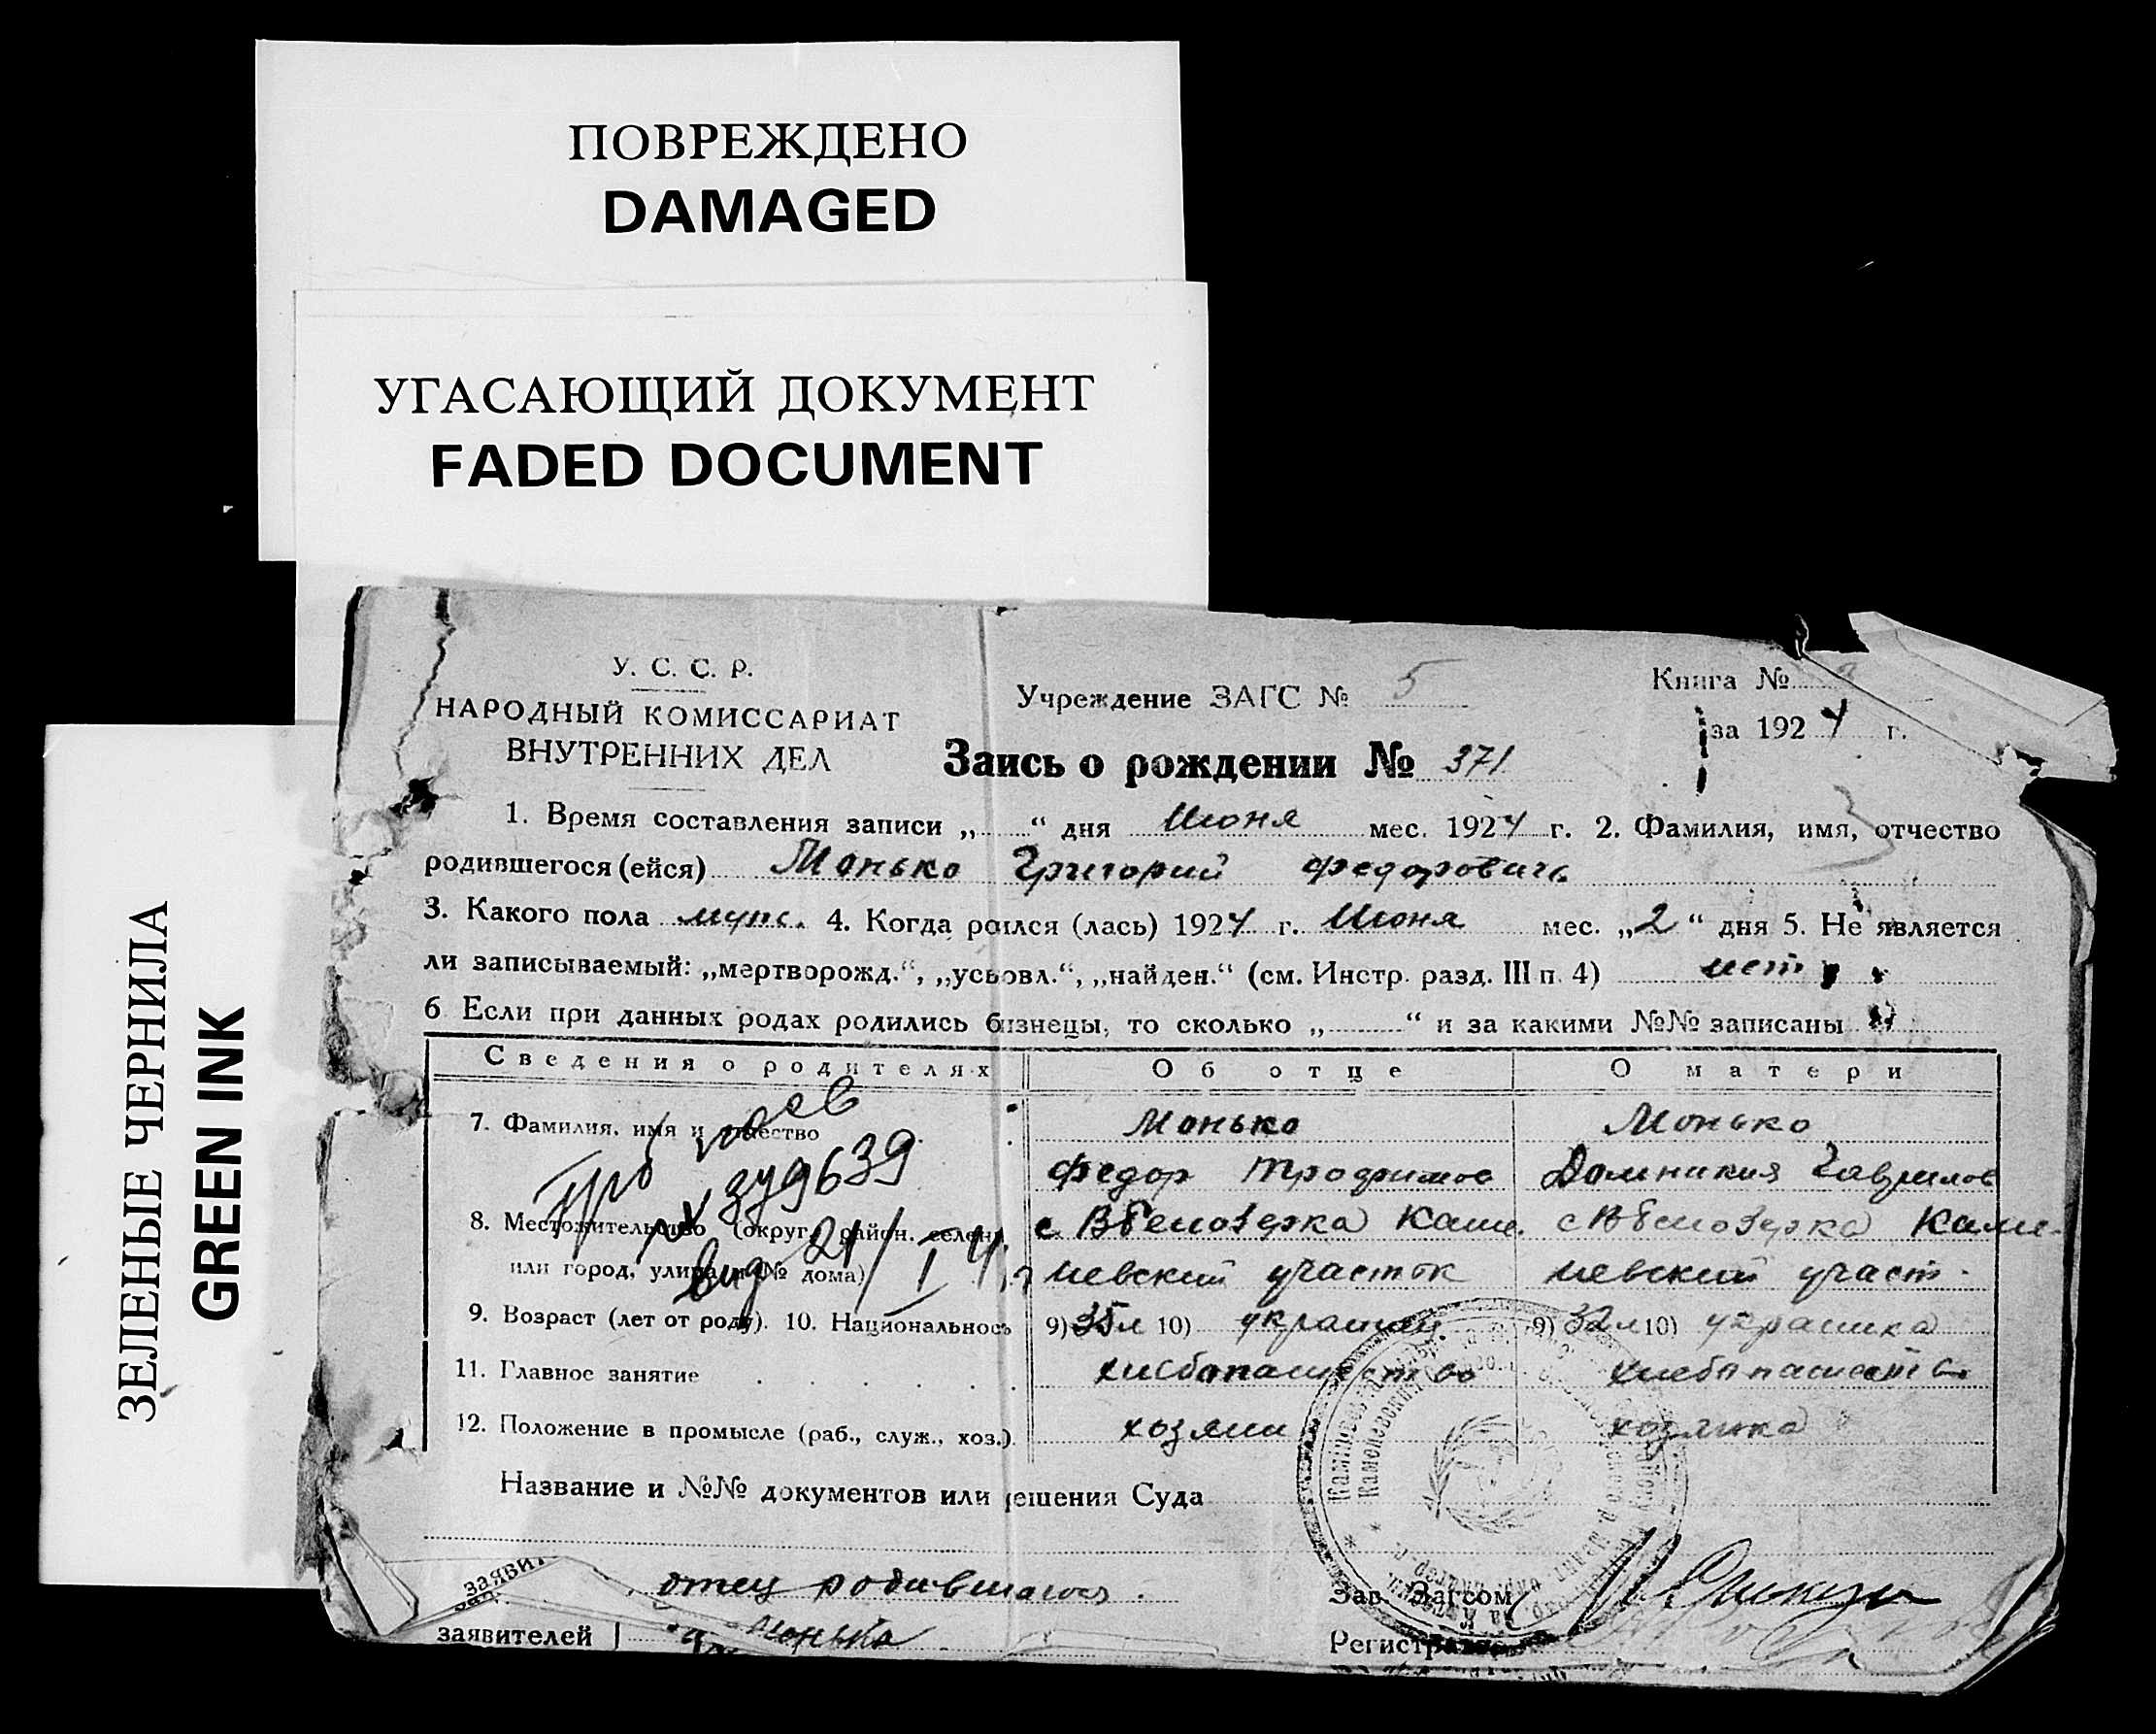 ПОВРЕЖДЕНО
DAMAGED
УГАСАЮЩИЙ ДОКУМЕНТ
FADED DOCUMENT
ЗЕЛЕНЫЕ ЧЕРНИЛА
GREEN INK
У. С. С. Р.
НАРОДНЫЙ КОМИССАРИАТ
ВНУТРЕННИХ ДЕЛ
Учреждение ЗАГС № 5
Книга №
за 1924 г.
Заись о рождении № 371
1. Время составления записи „ “ дня Июня мес. 1924 г. 2. Фамилия, имя, отчество
родившегося (ейся) Монько Григорий Федорович
3. Какого пола муж. 4. Когда роился (лась) 1924 г. Июня мес. „2“ дня 5. Не является
ли записываемый: „мертворожд.“, „усыовл.“, „найден.“ (см. Инстр. разд. III п. 4) нет
6 Если при данных родах родились бизнецы, то сколько „ “ и за какими №№ записаны
Сведения о родителях Об отце О матери
7. Фамилия, имя и отчество Монько Монько
Федор Трофимов Домникия Гаврилов
8. Местожительство (округ, район, селени Каме. Каме-
или город, улица и № дома) невский участок невский участ.
9. Возраст (лет от роду). 10. Национальнось 9) 35 л 10) украинец 9) 32 л 10) украинка
11. Главное занятие хлебопашество хлебопашество
12. Положение в промысле (раб., служ., хоз.). хозяин хозяйка
349639
21/I 41 г
Название и №№ документов или решения Суда
отец родившагося
заявителей Монько
Зав. Загсом
Регистратор